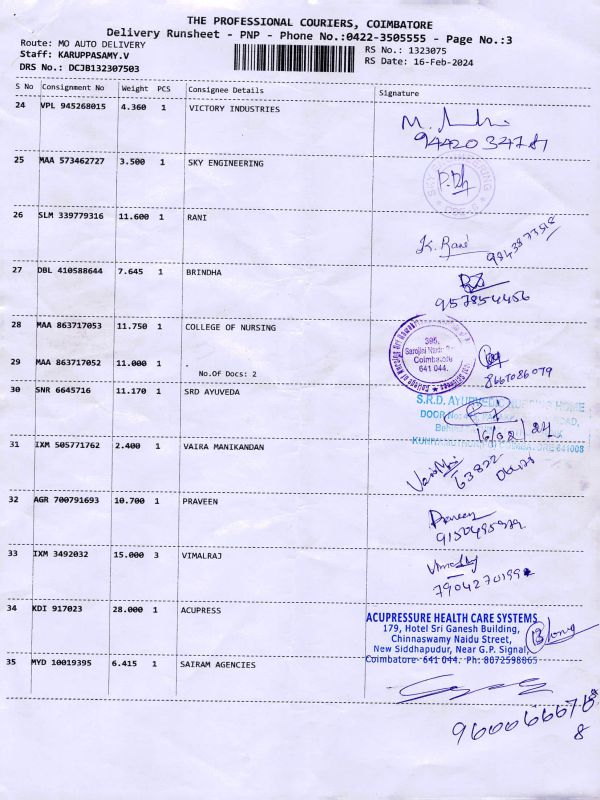 THE PROFESSIONAL COURIERS, COIMBATORE
Delivery Runsheet - PNP - Phone No.:0422-3505555 - Page No.:3
Route: MO AUTO DELIVERY RS No.: 1323075
Staff: KARUPPASAMY.V RS Date: 16-Feb-2024
DRS No.: DCJB132307503
S No Consignment No Weight PCS Consignee Details Signature
24 VPL 945268015 4.360 1 VICTORY INDUSTRIES
9442034781
25 MAA 573462727 3.500 1 SKY ENGINEERING
26 SLM 339779316 11.600 1 RANI
K. Rani
27 DBL 410588644 7.645 1 BRINDHA
9157854456
28 MAA 863717053 11.750 1 COLLEGE OF NURSING
395,
Sarojini Naidu
Coimbatore
641 044.
29 MAA 863717052 11.000 1 .
No.Of Docs: 2
8667086079
30 SNR 6645716 11.170 1 SRD AYUVEDA
S.R.D. AYURVEDA NURSING HOME
DOOR No: ROAD,
16/02/24
COIMBATORE 641008
31 IXM 505771762 2.400 1 VAIRA MANIKANDAN
63822
32 AGR 700791693 10.700 1 PRAVEEN
Praveen
33 IXM 3492032 15.000 3 VIMALRAJ
34 KDI 917023 28.000 1 ACUPRESS
ACUPRESSURE HEALTH CARE SYSTEMS
179, Hotel Sri Ganesh Building,
Chinnaswamy Naidu Street,
New Siddhapudur, Near G.P. Signal,
Coimbatore- 641 044. Ph: 8072598065
35 MYD 10019395 6.415 1 SAIRAM AGENCIES